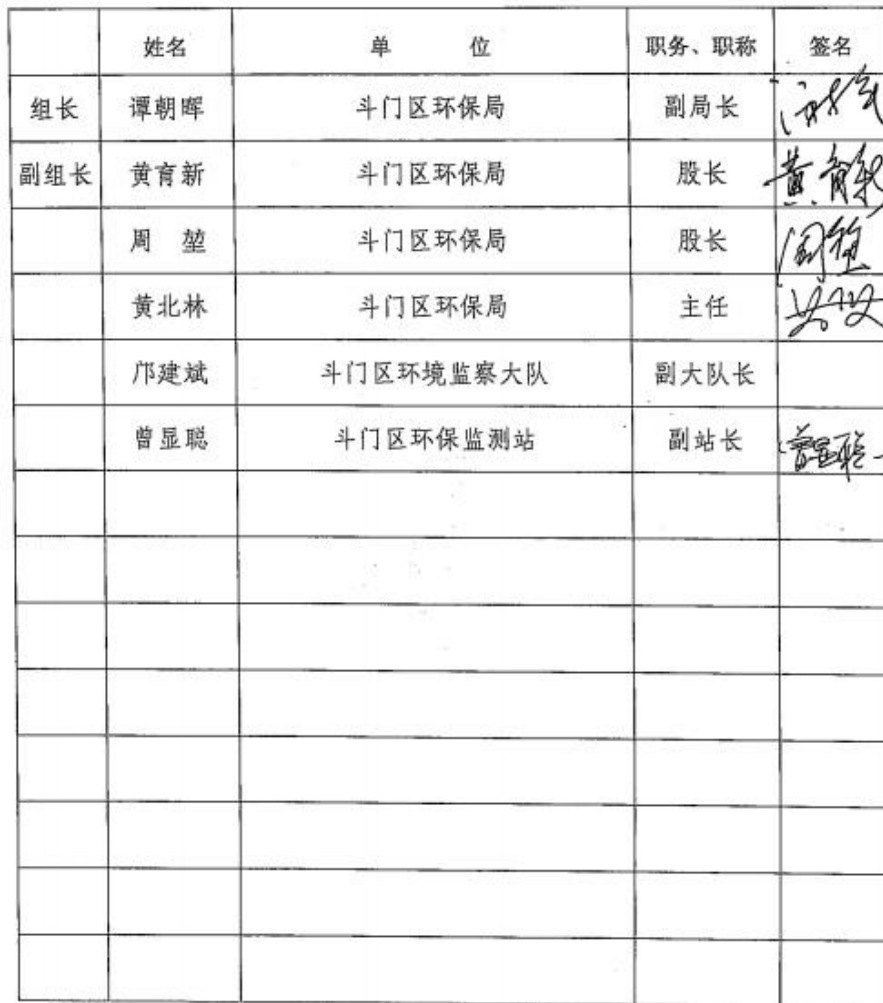 姓名 单 位 职务、职称 签名
组长 谭朝晖 斗门区环保局 副局长
副组长 黄育新 斗门区环保局 股长 黄育新
周 堃 斗门区环保局 股长 周堃
黄北林 斗门区环保局 主任
邝建斌 斗门区环境监察大队 副大队长
曾显聪 斗门区环保监测站 副站长 曾显聪